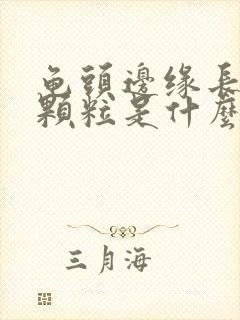 龟頭邊缘長
顆粒是什麼
三月海